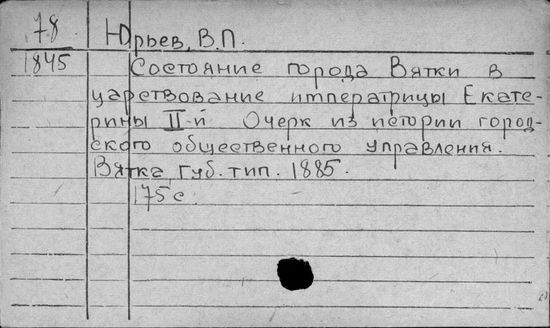 78 Юрьев, В.П.
1845 Состояние города Вятки в
царствование императрицы Екате-
рины II-й Очерк из истории город-
ского общественного управления.
Вятка, Губ. тип. 1885.
175 с.